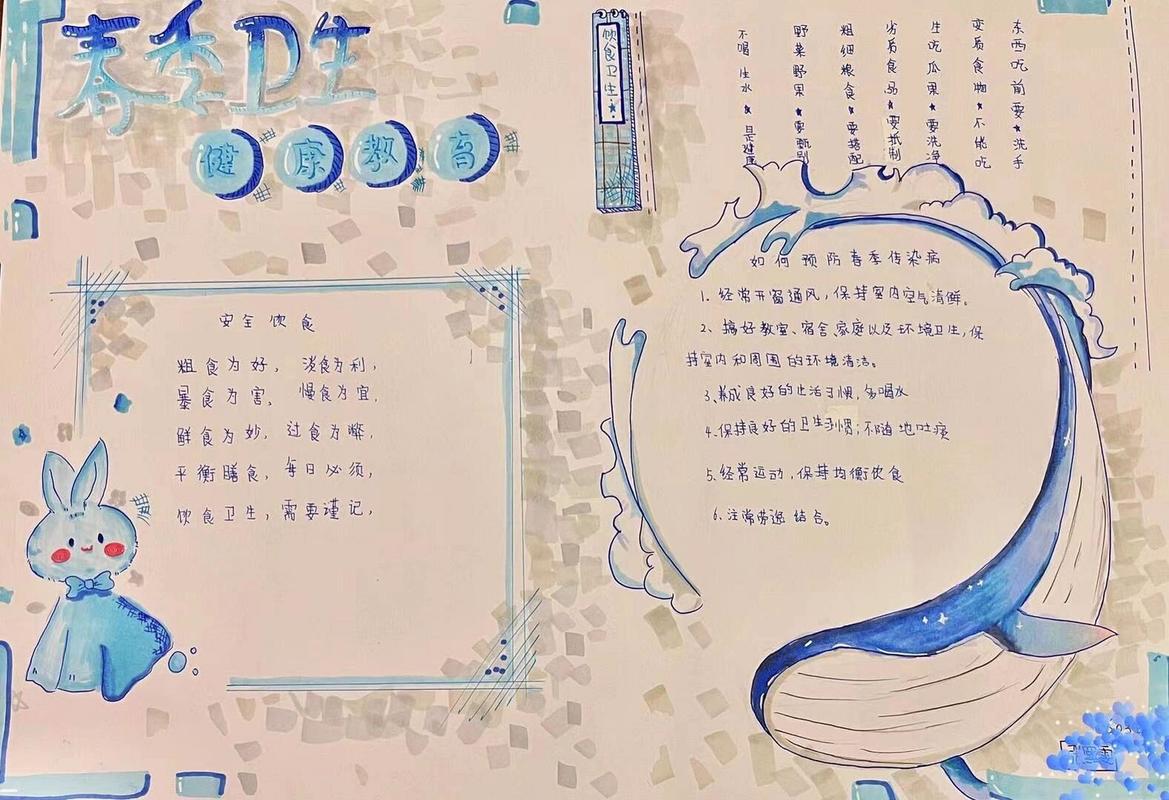 春季卫生
健康教育
安全饮食
粗食为好, 淡食为利,
暴食为害, 慢食为宜,
鲜食为妙, 过食为弊,
平衡膳食, 每日必须,
饮食卫生, 需要谨记,
饮食卫生
东西吃前要★洗手
变质食物★不能吃
生吃瓜果★要洗净
劣质食品★要抵制
粗细粮食★要搭配
野菜野果★要甄别
不喝生水★是健康
如何预防春季传染病
1. 经常开窗通风,保持室内空气清鲜。
2、搞好教室、宿舍、家庭以及环境卫生,保
持室内和周围的环境清洁。
3、养成良好的生活习惯,多喝水
4、保持良好的卫生习惯;不随地吐痰
5、经常运动,保持均衡饮食
6、注常劳逸结合。